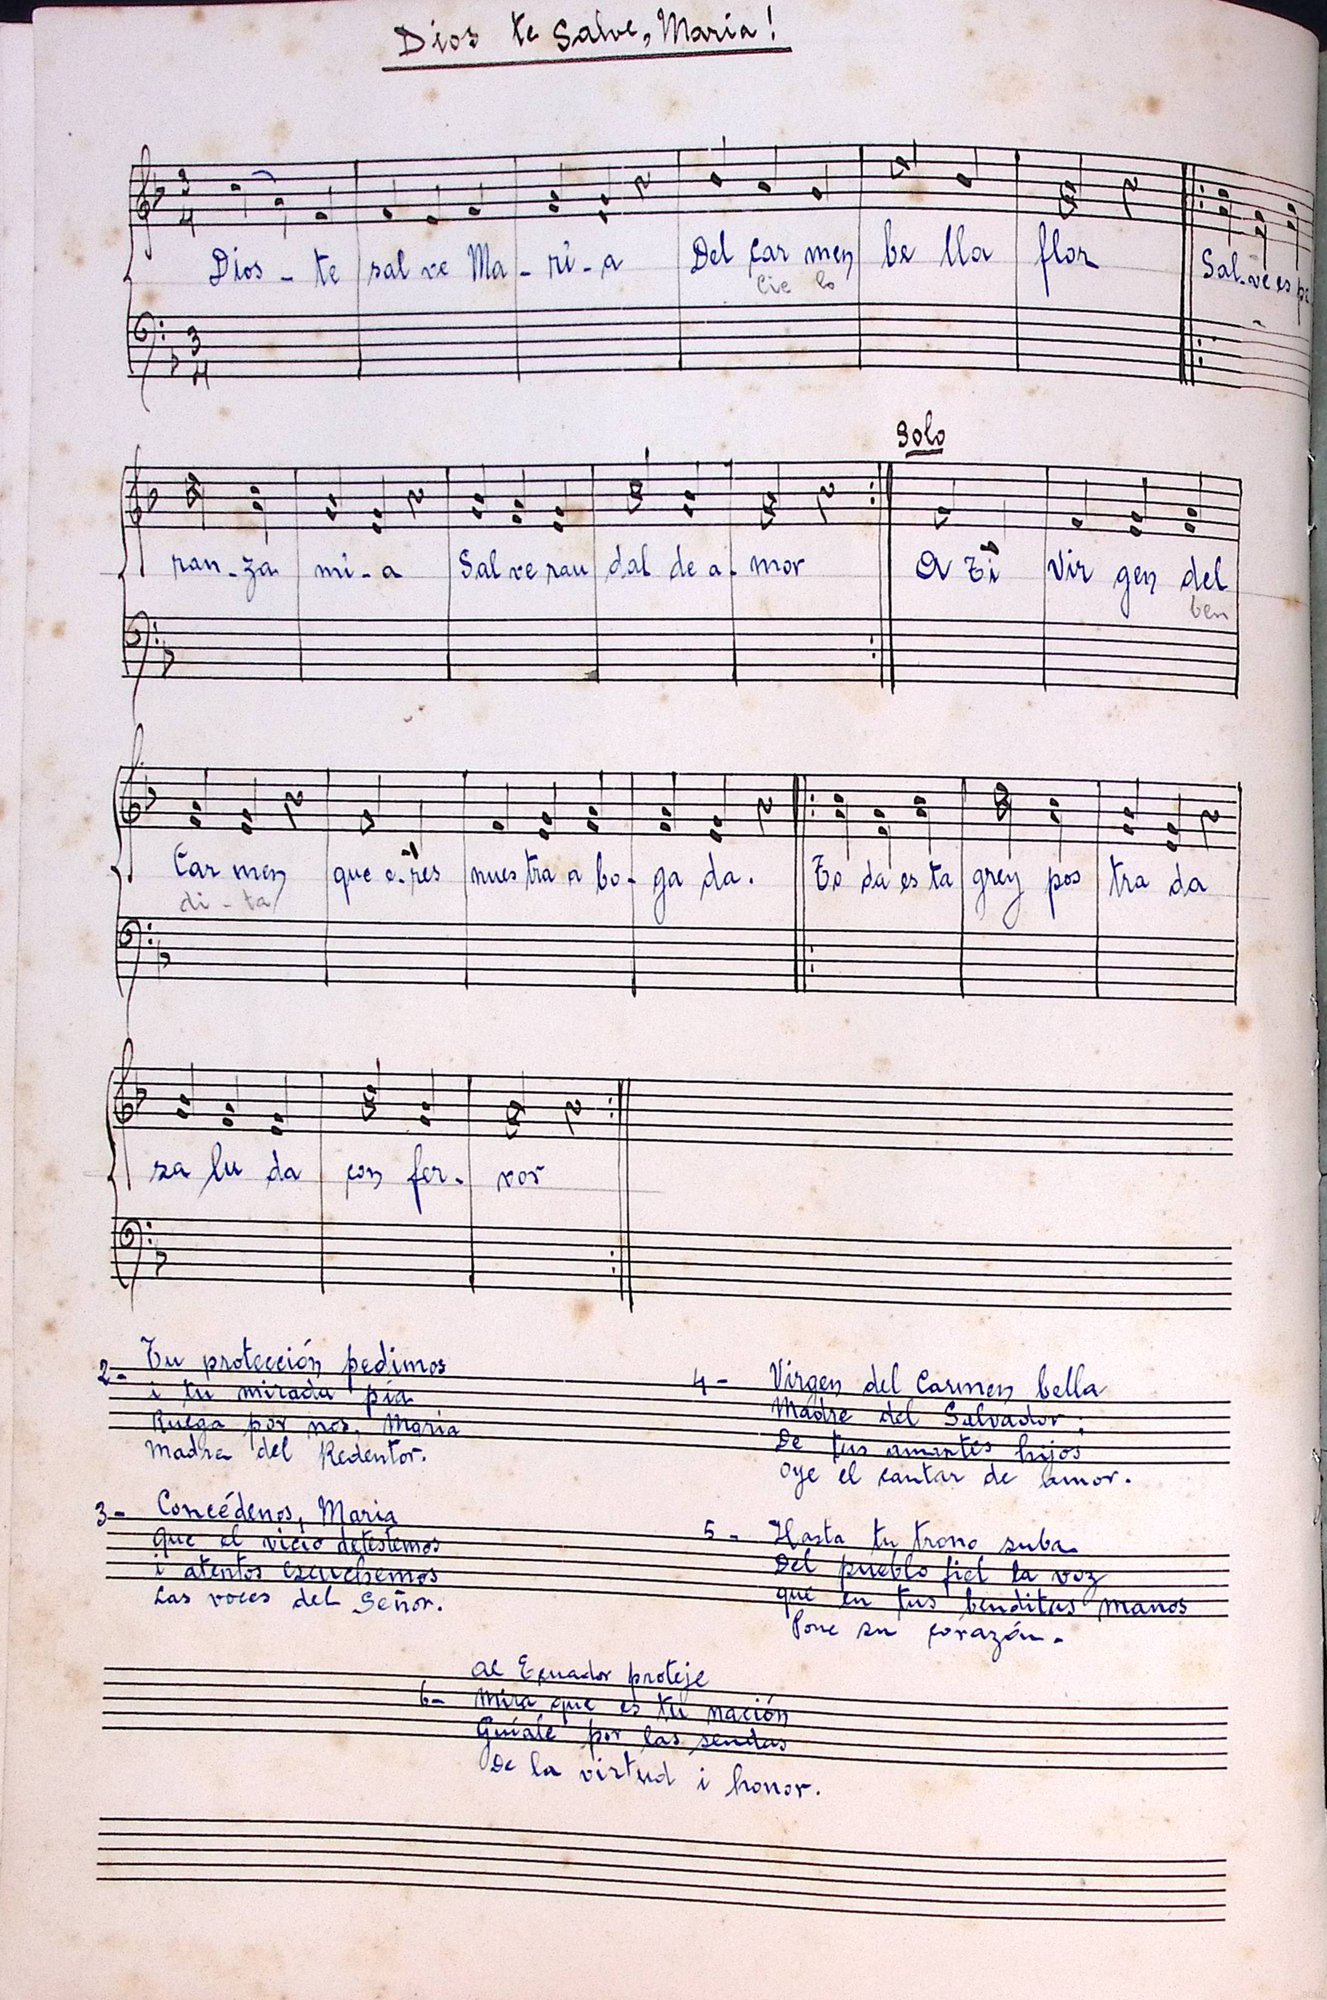 Dios te Salve, Maria!
3 4
Dios - te sal ve Ma - ri - a Del Car men be lla flor Sal - ve es pe
cie lo
3 4
Solo
ran - za mi - a Sal ve rau dal de a - mor A Ti Vir gen del
ben
Car men que e - res nues tra a bo - ga da. To da es ta grey pos tra da
di - ta
sa lu da con fer - vor
2 - Tu protección pedimos
i tu mirada pía
Ruega por nos, Maria
Madre del Redentor.
3 - Concédenos, Maria
que el vicio detestemos
i atentos escuchemos
Las voces del Señor.
4 - Virgen del Carmen bella
Madre del Salvador
De tus amantes hijos
oye el cantar de amor.
5 - Hasta tu trono suba
Del pueblo fiel la voz
que en tus benditas manos
Pone su corazón.
Al Ecuador proteje
6 - Mira que es tu nación
Guíale por las sendas
De la virtud i honor.